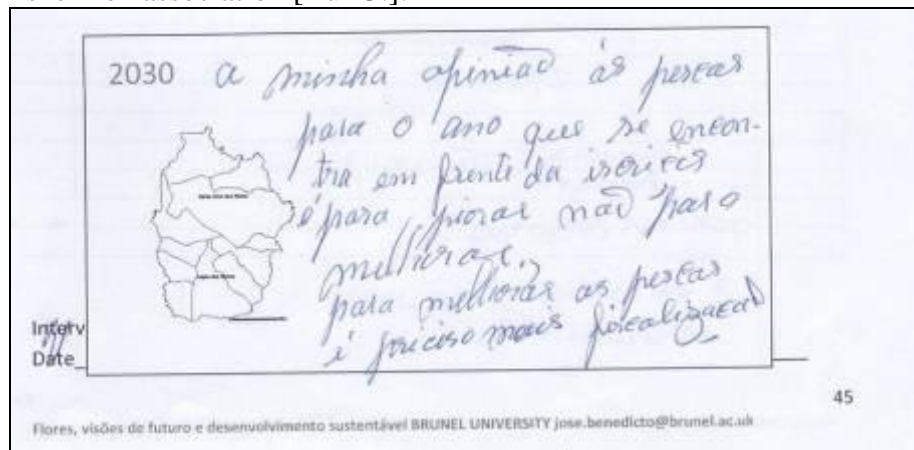 2030 a minha opinião ás pescas
para o ano que se encon-
tra em frente da
é para piorar não para
melhorar,
para melhorar as pescas
é preciso mais
Interv
Date_
45
Flores, visões de futuro e desenvolvimento sustentável BRUNEL UNIVERSITY jose.benedicto@brunel.ac.uk